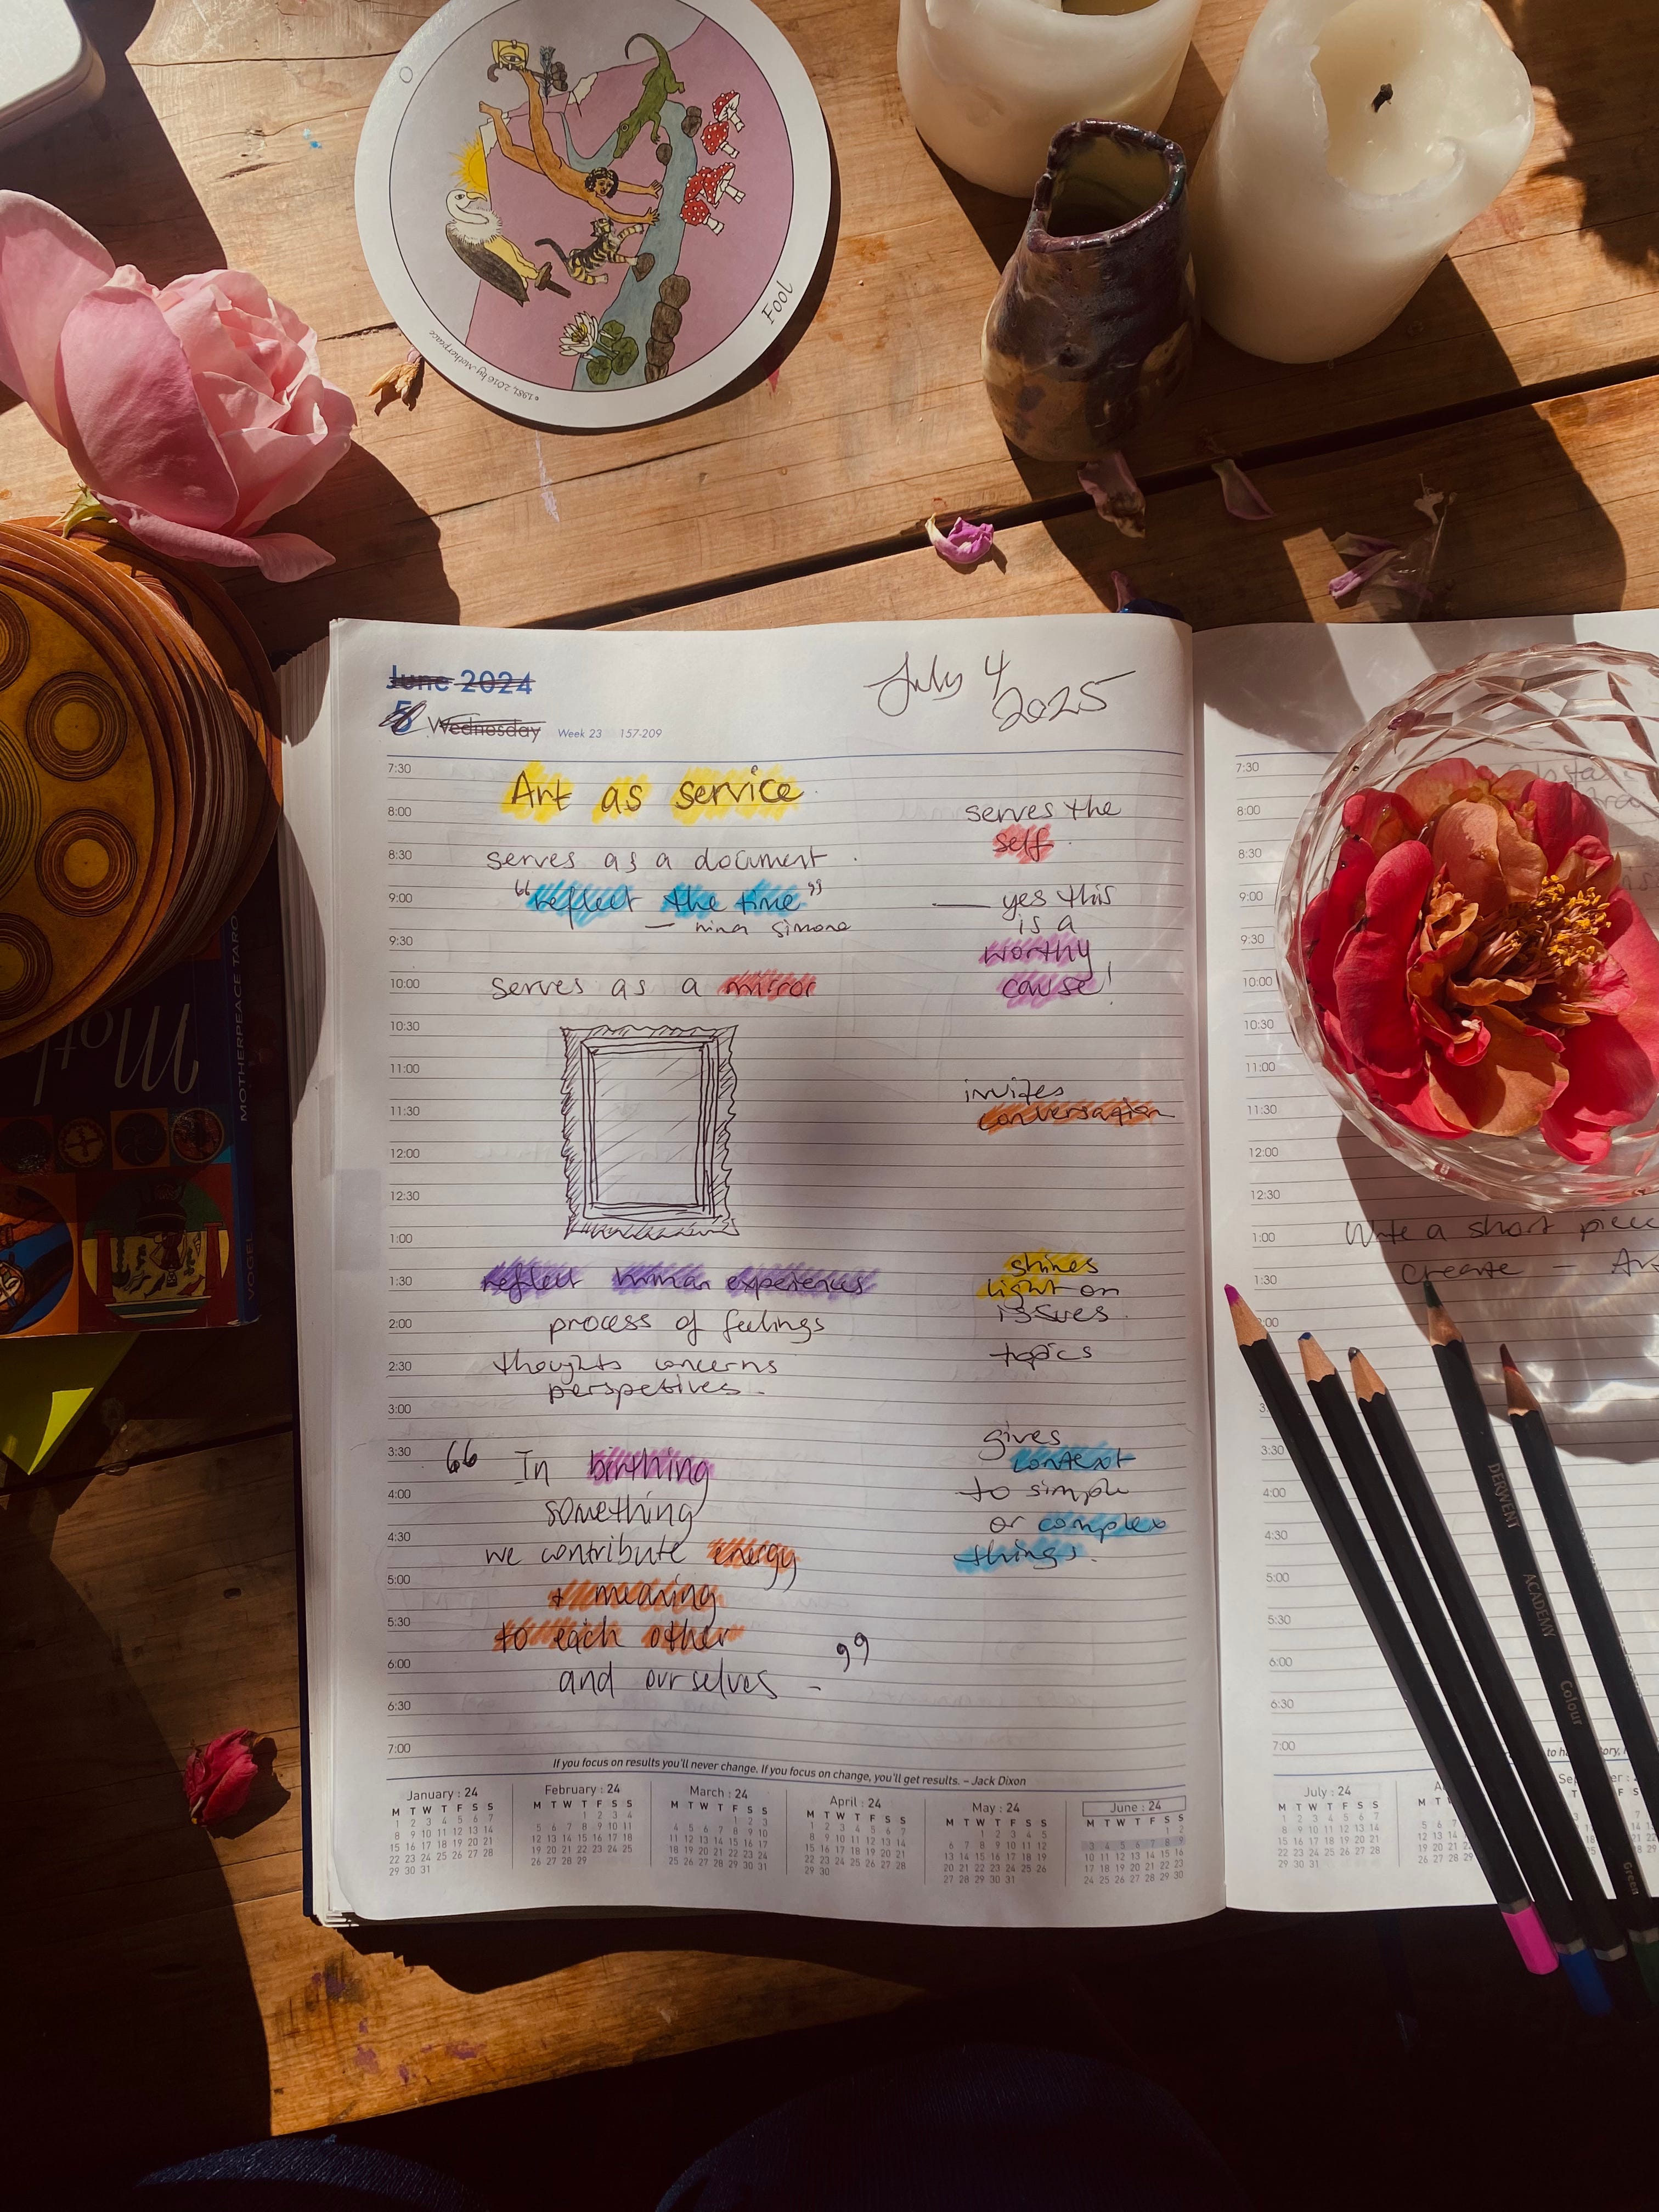 Fool
©1981, 2016 by Motherpeace
MOTHERPEACE TARO
Moth
VOGEL
June 2024
5 Wednesday Week 23 157-209
July 4
2025
7:30
Art as service
8:00
8:30
serves as a document.
9:00
“reflect the time”
— nina simone
9:30
10:00
serves as a mirror
10:30
11:00
11:30
12:00
12:30
1:00
1:30
reflect human experiences
2:00
process of feelings
2:30
thoughts concerns
perspetives.
3:00
3:30
“ In birthing
4:00
something
4:30
we contribute energy
5:00
+ meaning
5:30
to each other
6:00
and ourselves – ”
6:30
7:00
serves the
self.
— yes this
is a
worthy
cause!
invites
conversation
shines
light on
issues.
topics
gives
context
to simple
or complex
things.
If you focus on results you'll never change. If you focus on change, you'll get results. – Jack Dixon
January : 24
M T W T F S S
1 2 3 4 5 6 7
8 9 10 11 12 13 14
15 16 17 18 19 20 21
22 23 24 25 26 27 28
29 30 31
February : 24
M T W T F S S
1 2 3 4
5 6 7 8 9 10 11
12 13 14 15 16 17 18
19 20 21 22 23 24 25
26 27 28 29
March : 24
M T W T F S S
1 2 3
4 5 6 7 8 9 10
11 12 13 14 15 16 17
18 19 20 21 22 23 24
25 26 27 28 29 30 31
April : 24
M T W T F S S
1 2 3 4 5 6 7
8 9 10 11 12 13 14
15 16 17 18 19 20 21
22 23 24 25 26 27 28
29 30
May : 24
M T W T F S S
1 2 3 4 5
6 7 8 9 10 11 12
13 14 15 16 17 18 19
20 21 22 23 24 25 26
27 28 29 30 31
June : 24
M T W T F S S
1 2
3 4 5 6 7 8 9
10 11 12 13 14 15 16
17 18 19 20 21 22 23
24 25 26 27 28 29 30
7:30
8:00
8:30
9:00
9:30
10:00
10:30
11:00
11:30
12:00
12:30
1:00
Write a short piece
1:30
create – Art
2:00
3:30
4:00
4:30
5:00
5:30
6:00
6:30
7:00
July : 24
M T W T F S S
1 2 3 4 5 6 7
8 9 10 11 12 13 14
15 16 17 18 19 20 21
22 23 24 25 26 27 28
29 30 31
DERWENT ACADEMY Colour Green